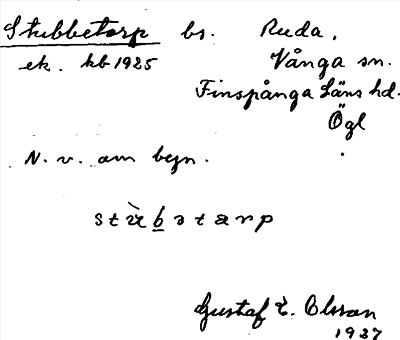 Stubbetorp bs. Ruda,
ek. kb 1925 Vånga sn.
Finspånga Läns hd.
Ögl
N. v. om begn.
stùbətarp
Gustaf E. Olsson
1937